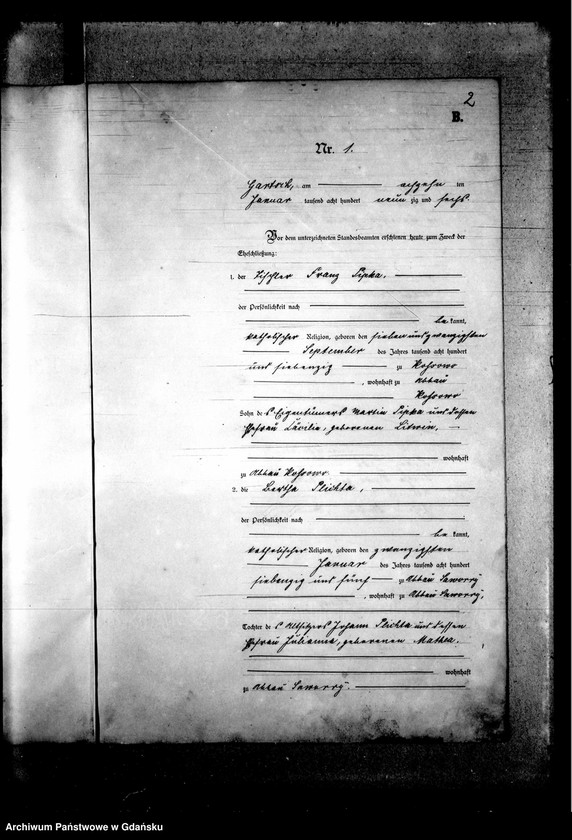 2
B.
Nr. 1.
Gartsch, am achzehn ten
Januar tausend acht hundert neun zig und sechs.
Vor dem unterzeichneten Standesbeamten erschienen heute zum Zweck der
Eheschließung:
1. der Tischler Franz Sipka,
der Persönlichkeit nach
be kannt,
katholischer Religion, geboren den sieben und zwanzigsten
September des Jahres tausend acht hundert
und siebenzig zu Kossowo
, wohnhaft zu Abbau
Kossowo
Sohn des Eigentümers Martin Sipka und dessen
Ehefrau Cäcilie, geborenen Litwin,
wohnhaft
zu Abbau Kossowo.
2. die Bertha Plichta,
der Persönlichkeit nach
be kannt,
katholischer Religion, geboren den zwanzigsten
Januar des Jahres tausend acht hundert
siebenzig und fünf zu Abbau Saworry
, wohnhaft zu Abbau Saworry,
Tochter des Altsitzers Johann Plichta und dessen
Ehefrau Julianna, geborenen
wohnhaft
zu Abbau Saworry.
Archiwum Państwowe w Gdańsku